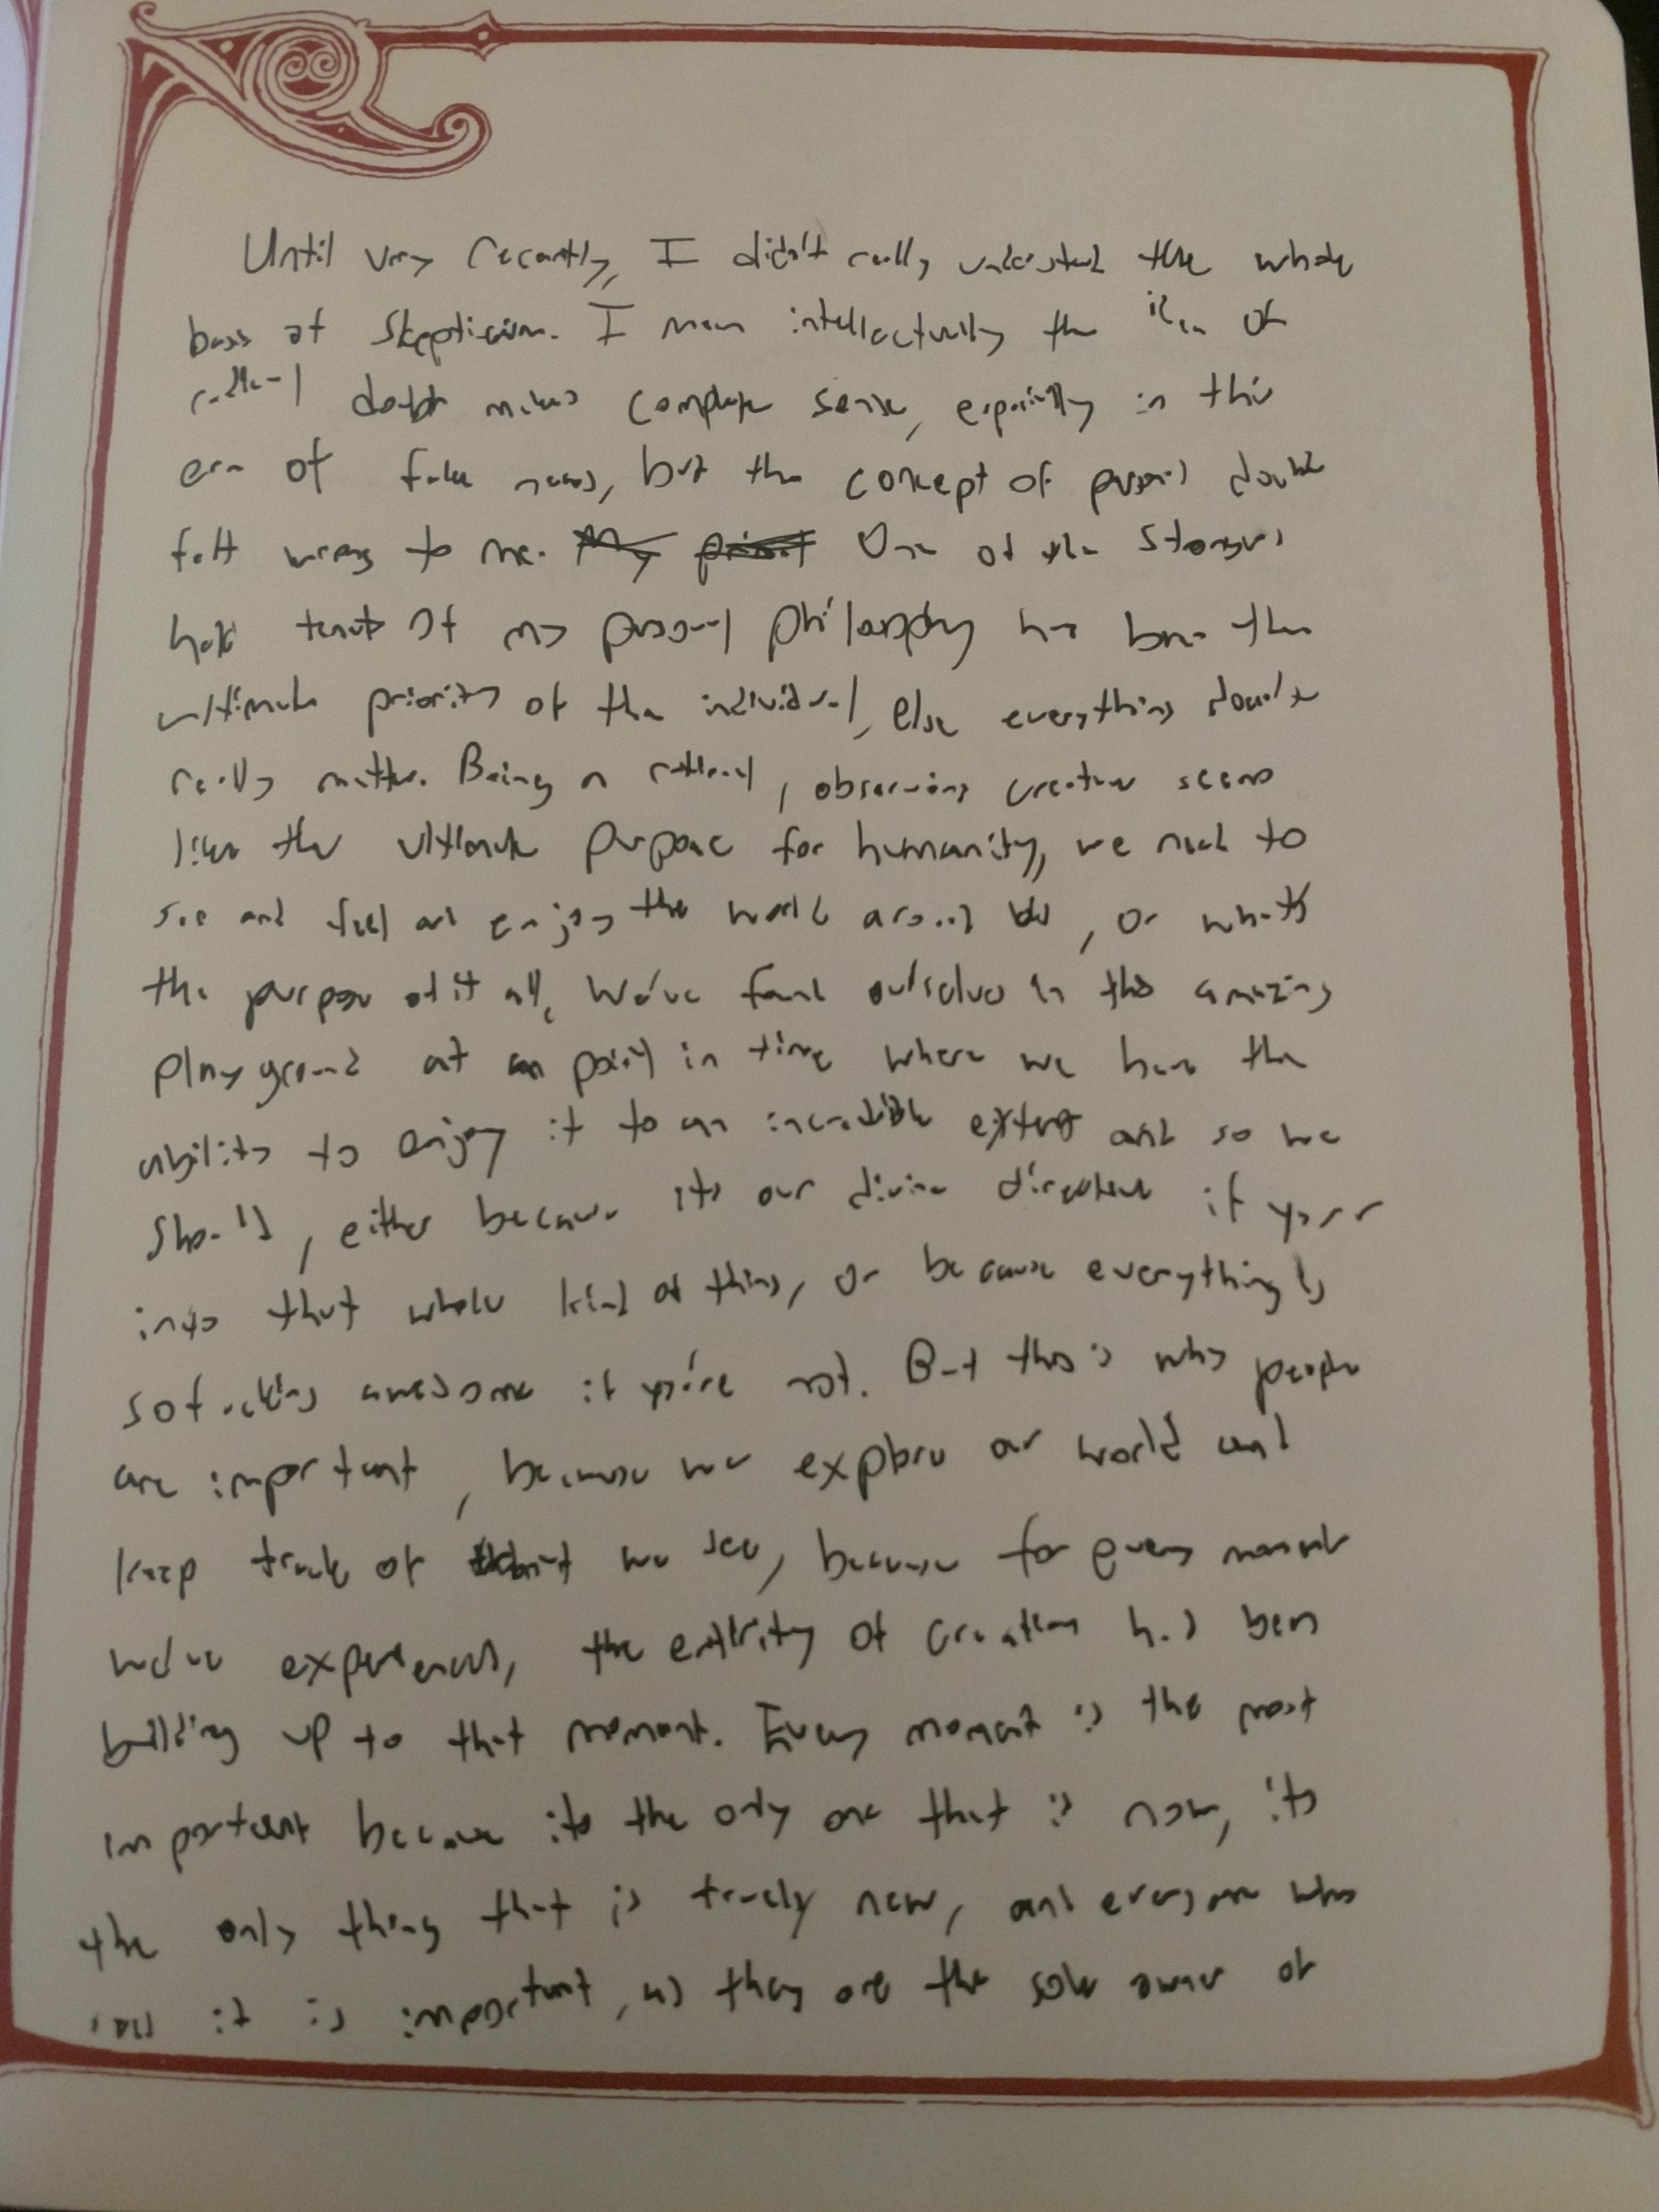 Until very recently, I didn't really understand the whole
basis of Skepticism. I mean intellectually the idea of
rational doubt makes complete sense, especially in this
era of fake news, but the concept of personal doubt
felt wrong to me. One of the strongest
held tenets of my personal philosophy has been the
ultimate priority of the individual, else everything doesn't
really matter. Being a rational, observing creature seems
like the ultimate purpose for humanity, we need to
see and feel and enjoy the world around us, or what's
the purpose of it all, We've found ourselves in this amazing
playground at a point in time where we have the
ability to enjoy it to an incredible extent and so we
should, either because its our divine directive if your
into that whole kind of thing, or because everything is
so fucking awesome if you're not. But this is why people
are important, because we explore our world and
keep track of what we see, because for every moment
we've experienced, the entirity of creation has been
building up to that moment. Every moment is the most
important because its the only one that is now, its
the only thing that is truely new, and everyone who
it is important, as they are the sole owner of